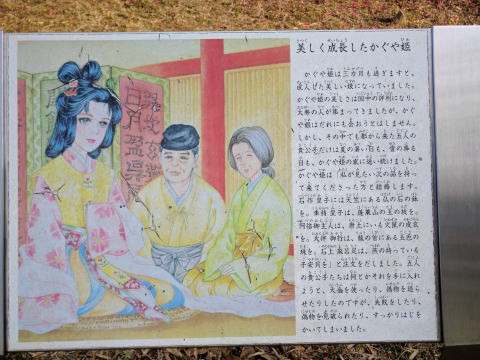 美しく成長したかぐや姫
かぐや姫は三カ月も過ぎますと、
成人した美しい姫になっていました。
かぐや姫の美しさは国中の評判になり、
大勢の人が集まってきましたが、かぐ
や姫はだれにも会おうとはしません。
しかし、その中でも都から来た五人の
貴公子だけは夏の暑い日も、雪の降る
日も、かぐや姫の家に通い続けました。
かぐや姫は「私が見たい次の品を持っ
て来てくださった方と結婚します。
石作皇子には天竺にある仏の石の鉢
を。車持皇子は、蓬莱山の玉の枝を。
阿倍御主人は、唐土にいる火鼠の皮衣
を。大伴御行は、龍の首にある五色の
珠を。石上麻呂足は、燕の持っている
子安貝を」と注文をだしました。五人
の貴公子たちは何とかそれを手に入れ
ようと、大金を使ったり、偽物を造ら
せたりしたのですが、失敗をしたり、
偽物を見破られたり、すっかりはじを
かいてしまいました。